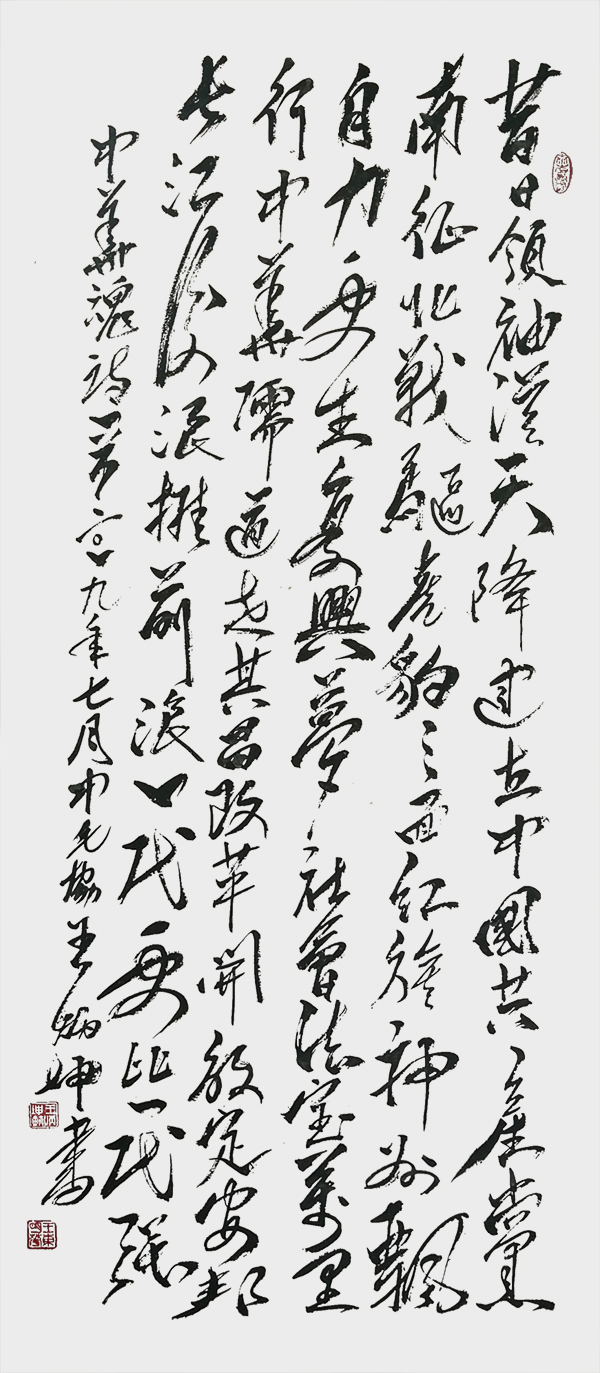 昔日領袖從天降建立中國共產黨
南征北戰驅虎豹三面紅旗神州飄
自力更生復興夢社會法宝萬里
行中華儒道起其昌改革開放定安邦
長江後浪推前浪一代更比一代強
中華魂詩一首二〇一九年七月中老協王炳坤書